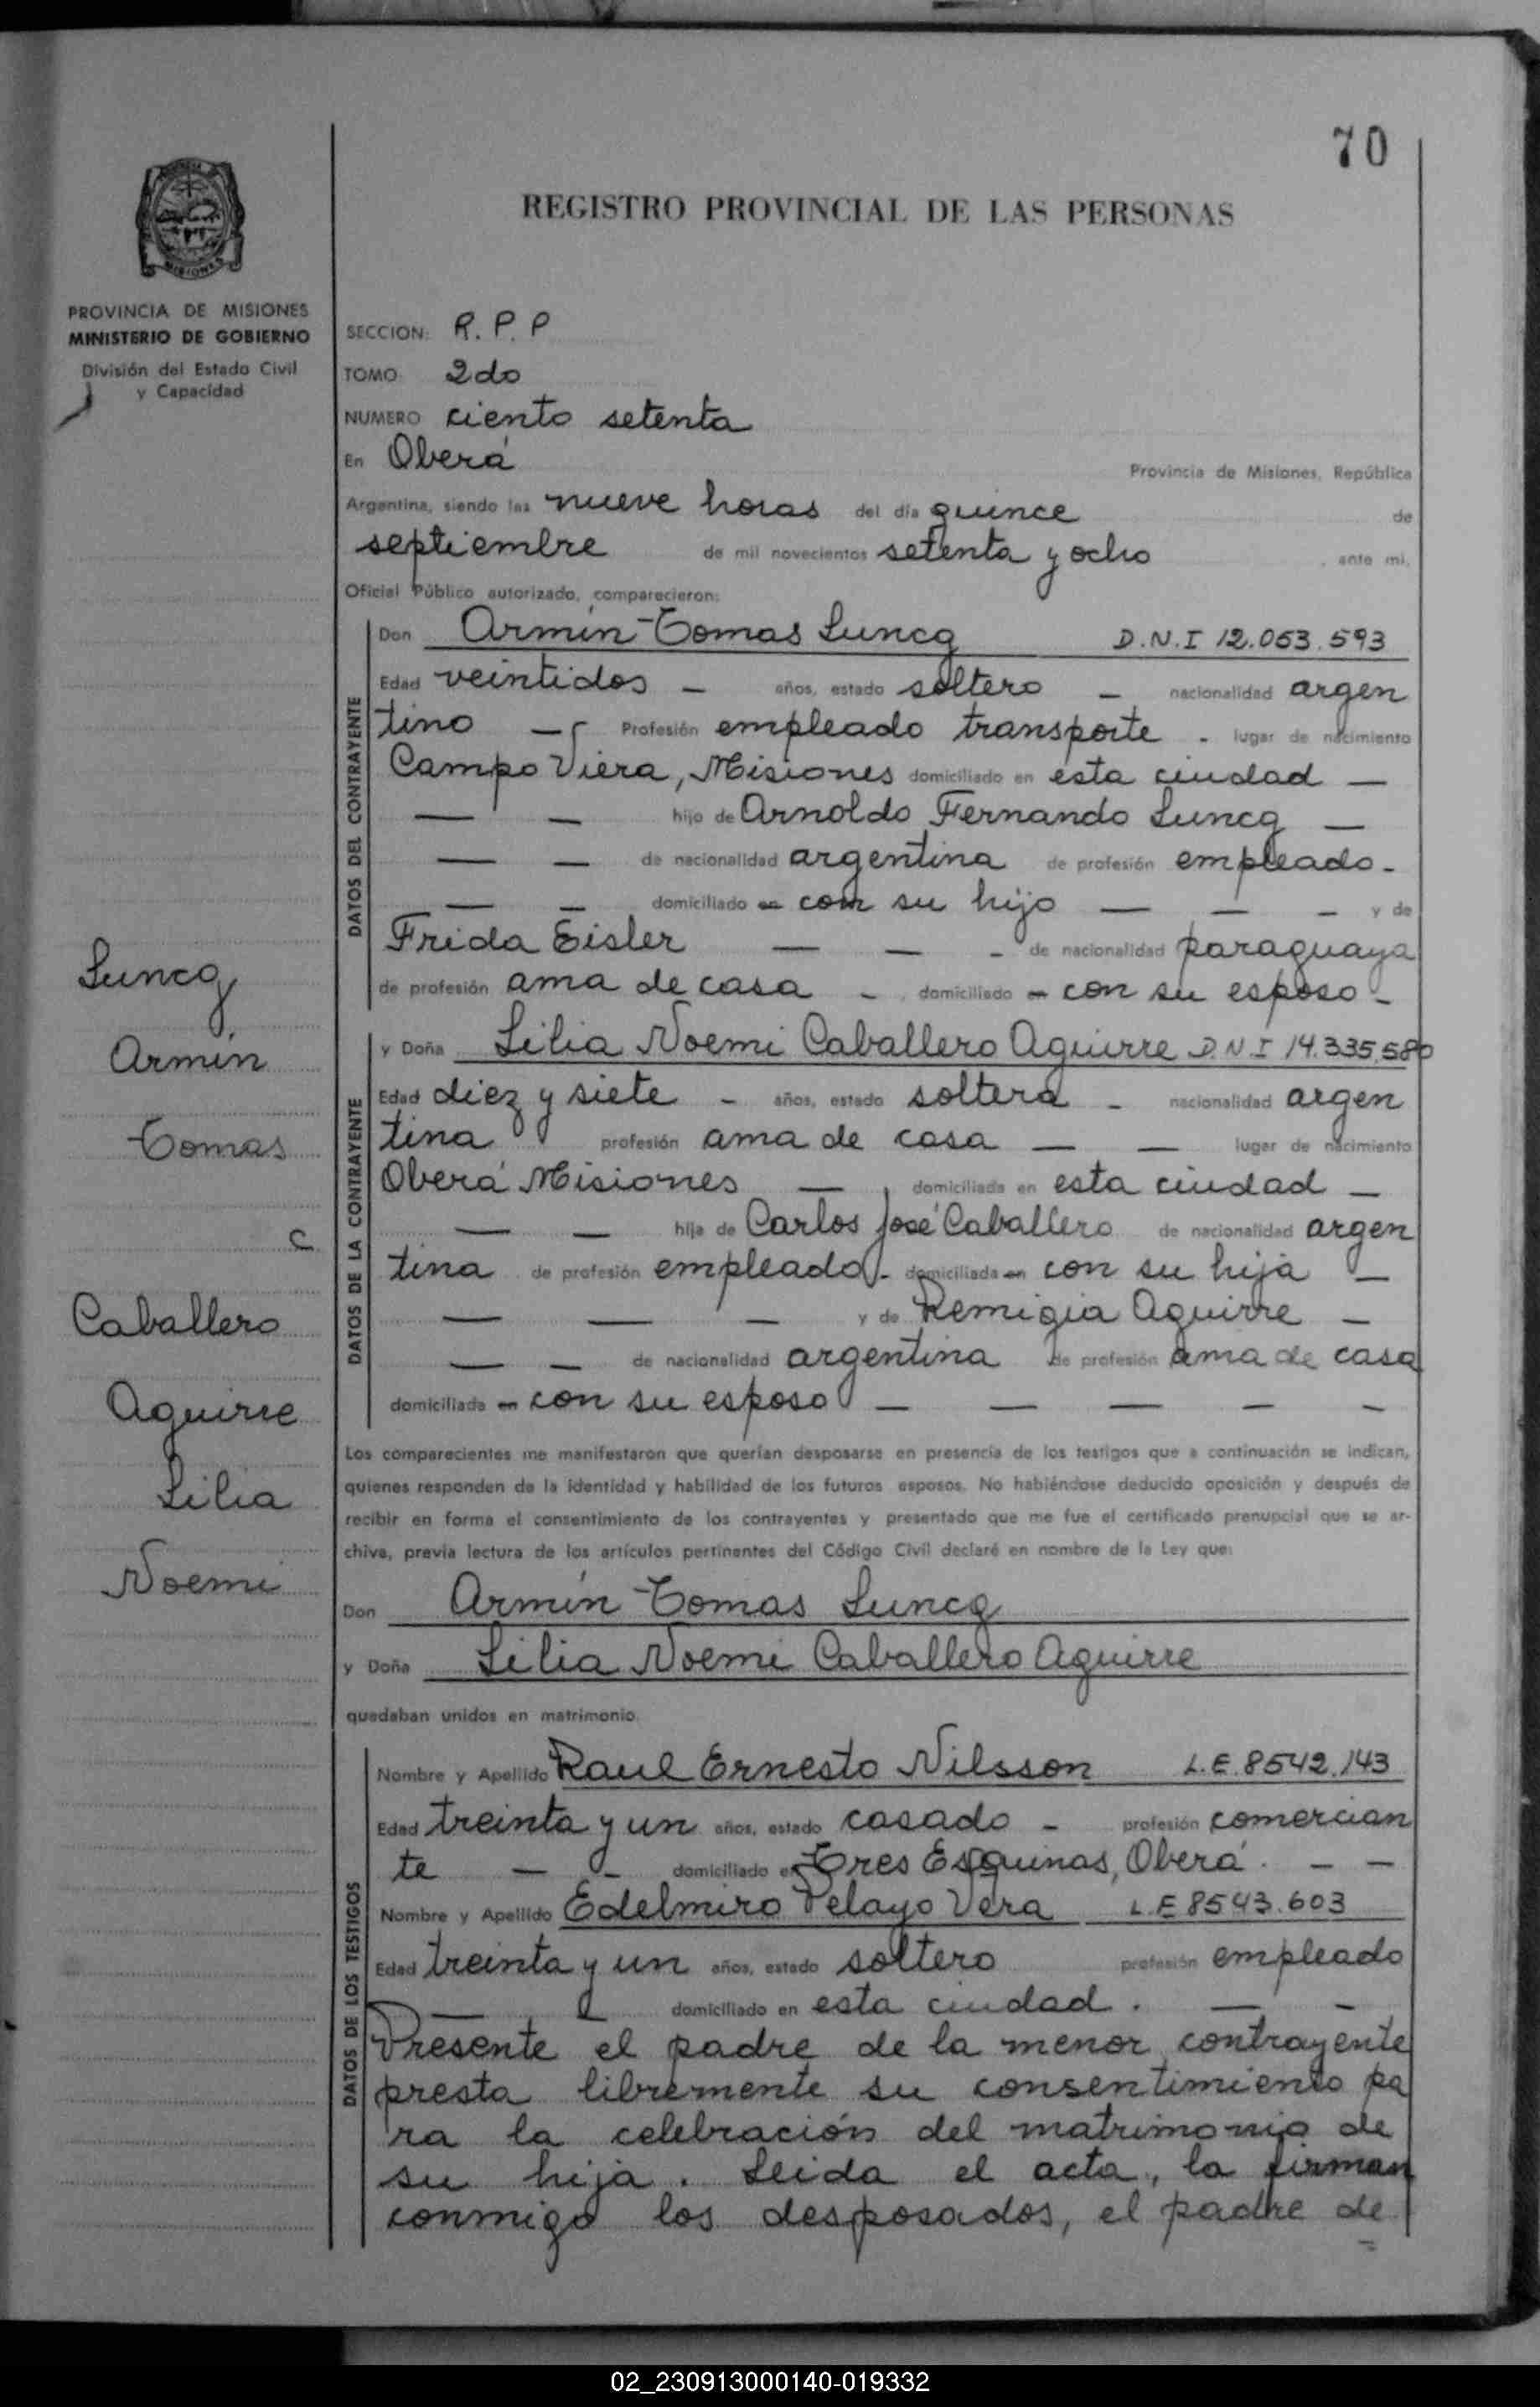 70
REGISTRO PROVINCIAL DE LAS PERSONAS
MISIONES
PROVINCIA DE MISIONES
MINISTERIO DE GOBIERNO
División del Estado Civil
y Capacidad
SECCION: R.P.P
TOMO 2do
NUMERO ciento setenta
En Oberá Provincia de Misiones, República
Argentina, siendo las nueve horas del día quince de
septiembre de mil novecientos setenta y ocho , ante mí,
Oficial Público autorizado, comparecieron:
DATOS DEL CONTRAYENTE
Don Armin Tomas Luncg D.N.I 12.053.593
Edad veintidos — años, estado soltero — nacionalidad argen
tino — Profesión empleado transporte - lugar de nacimiento
Campo Viera, Misiones domiciliado en esta ciudad —
— — hijo de Arnoldo Fernando Luncg —
— — de nacionalidad argentina de profesión empleado -
— - domiciliado en con su hijo — — - y de
Frida Eisler — — - de nacionalidad paraguaya
de profesión ama de casa - domiciliado en con su esposo -
DATOS DE LA CONTRAYENTE
y Doña Lilia Noemi Caballero Aguirre D.N.I 14.335.580
Edad diez y siete - años, estado soltera - nacionalidad argen
tina profesión ama de casa — — lugar de nacimiento
Oberá Misiones — , domiciliada en esta ciudad —
— — hija de Carlos José Caballero de nacionalidad argen
tina de profesión empleado - domiciliada en con su hija —
— — — y de Remigia Aguirre —
— — de nacionalidad argentina de profesión ama de casa
domiciliada en con su esposo — — — — -
Luncg
Armin
Tomas
c
Caballero
Aguirre
Lilia
Noemi
Los comparecientes me manifestaron que querían desposarse en presencia de los testigos que a continuación se indican,
quienes responden de la identidad y habilidad de los futuros esposos. No habiéndose deducido oposición y después de
recibir en forma el consentimiento de los contrayentes y presentado que me fue el certificado prenupcial que se ar-
chiva, previa lectura de los artículos pertinentes del Código Civil declaré en nombre de la Ley que:
Don Armin Tomas Luncg
y Doña Lilia Noemi Caballero Aguirre
quedaban unidos en matrimonio.
DATOS DE LOS TESTIGOS
Nombre y Apellido Raul Ernesto Nilsson L.E. 8542.143
Edad treinta y un años, estado casado - profesión comercian
te — - domiciliado en Tres Esquinas, Oberá. — —
Nombre y Apellido Edelmiro Pelayo Vera L.E 8543.603
Edad treinta y un años, estado soltero profesión empleado
— domiciliado en esta ciudad. — -
Presente el padre de la menor contrayente
presta libremente su consentimiento pa
ra la celebración del matrimonio de
su hija. Leida el acta, la firman
conmigo los desposados, el padre de
02_230913000140-019332